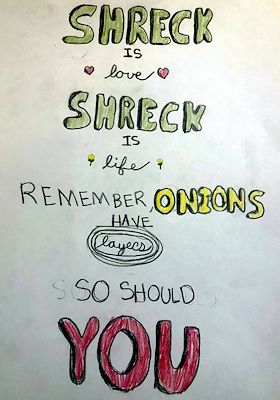 SHRECK
IS
love
SHRECK
IS
life
REMEMBER, ONIONS
HAVE
layers
SO SHOULD
YOU